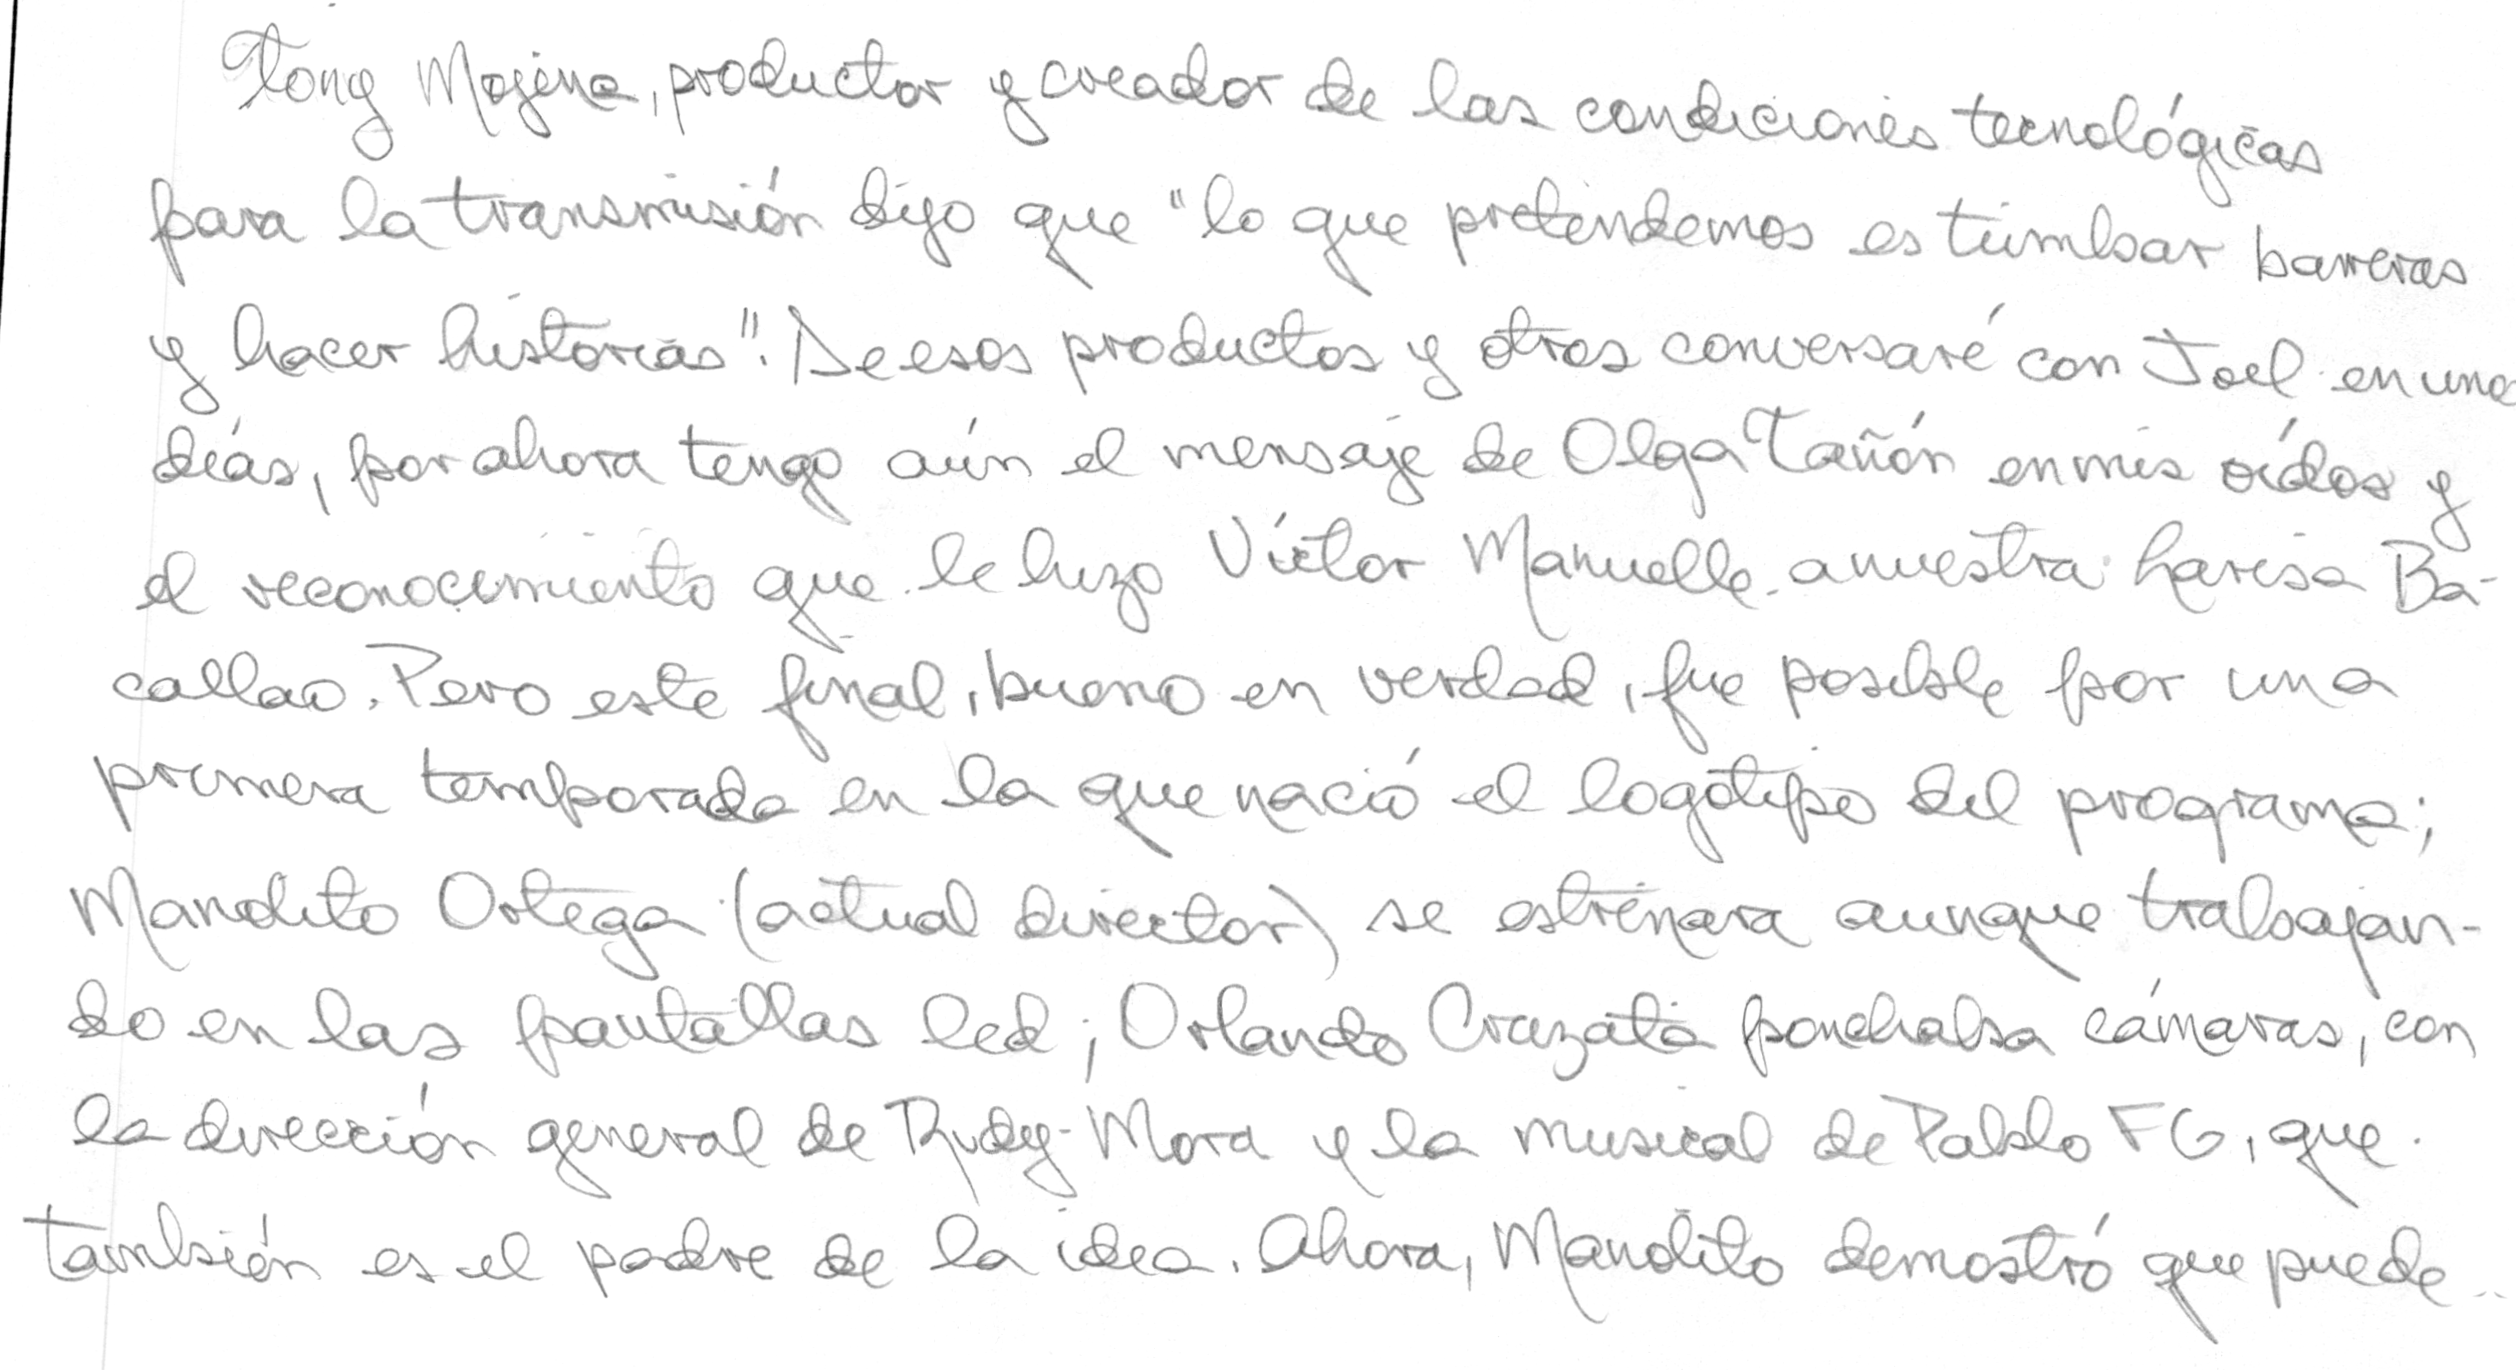 Tony Mojena, productor y creador de las condiciones tecnológicas
para la transmisión dijo que "lo que pretendemos es tumbar barreras
y hacer historias". De esos productos y otros conversaré con Joel en uno
días, por ahora tengo aún el mensaje de Olga Tañón en mis oídos y
el reconocimiento que le hizo Víctor Manuelle a nuestra Larisa Ba-
callao. Pero este final, bueno en verdad, fue posible por una
primera temporada en la que nació el logotipo del programa;
Manolito Ortega (actual director) se estrenara aunque trabajan-
do en las pantallas led; Orlando Cruzata ponchaba cámaras, con
la dirección general de Rudy Mora y la musical de Pablo FG, que
también es el padre de la idea. Ahora, Manolito demostró que puede